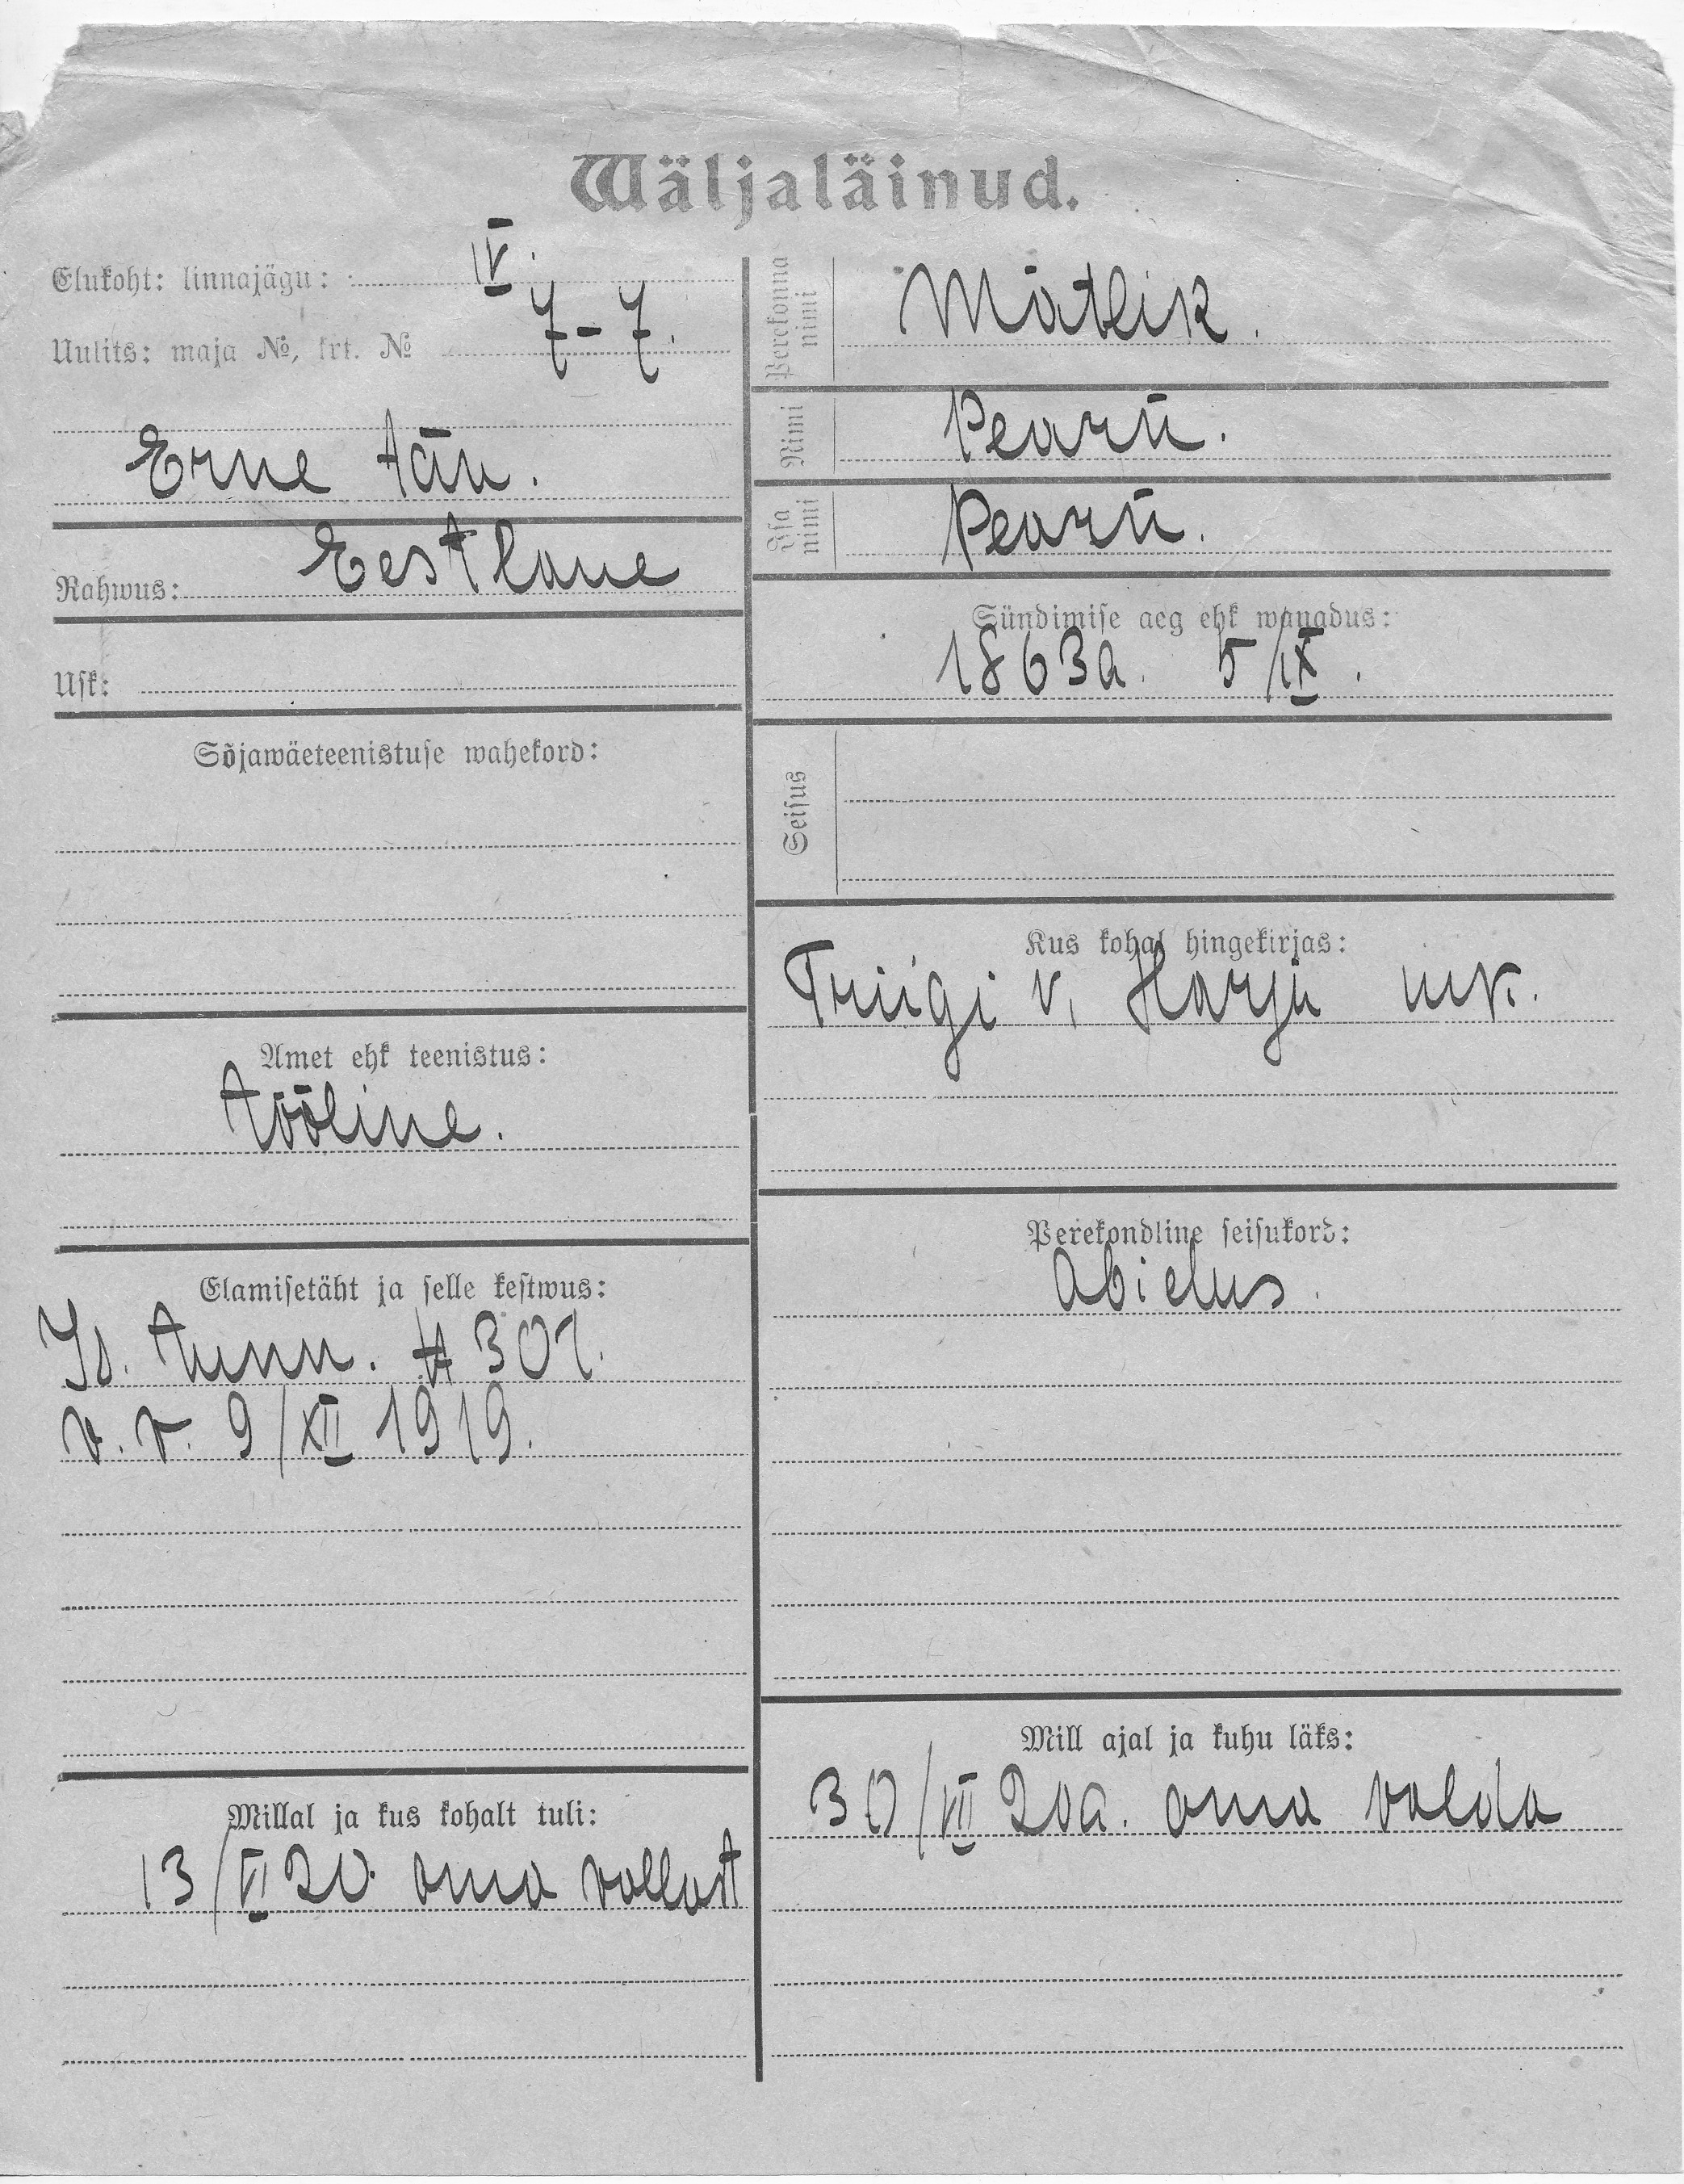 Wäljaläinud.
Elukoht: linnajägu: IV.
Uulits: maja №, krt. № 7-7.
Erne tän.
Rahwus: Eestlane
Usk:
Sõjawäeteenistuse wahekord:
Amet ehk teenistus:
tööline.
Elamisetäht ja selle kestwus:
Is. tunn. # 307.
v. v. 9/XII 1919.
Millal ja kus kohalt tuli:
13/VI 20. oma vallast
Perekonna nimi Mätlik.
Nimi Pearu.
Isa nimi Pearu.
Sündimise aeg ehk wanadus:
1863a. 5/IX.
Seisus
Kus kohal hingekirjas:
Triigi v, Harju mk.
Perekondline seisukord:
Abielus.
Mill ajal ja kuhu läks:
30/VII 20a. oma valda